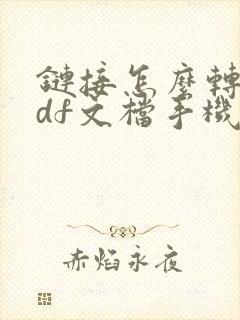 鏈接怎麼轉
df文檔手機
赤焰永夜